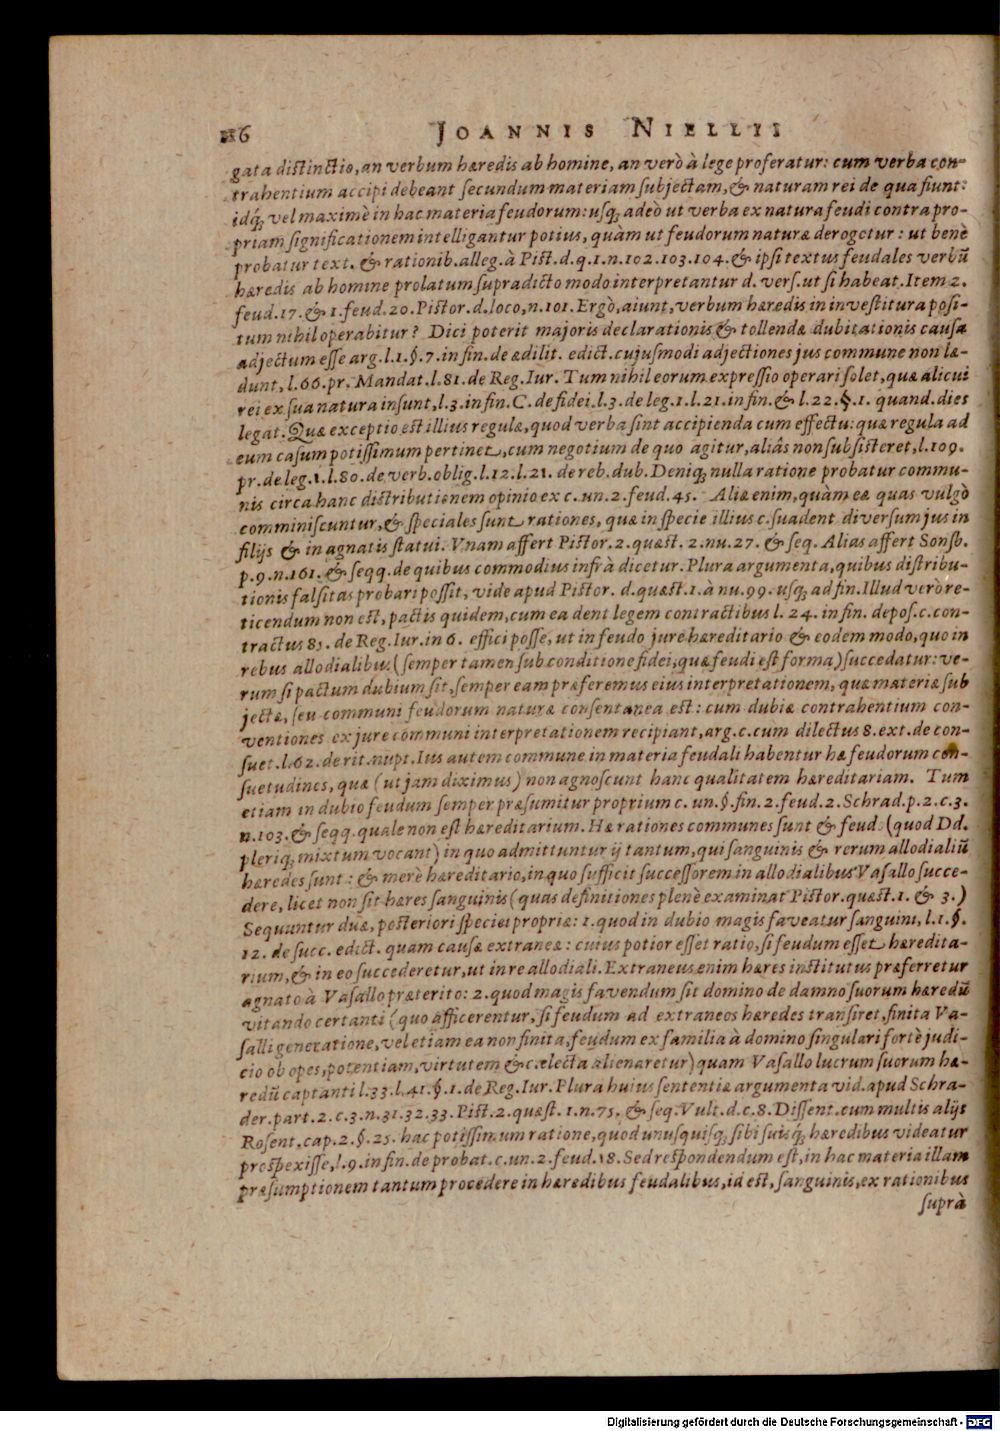 116 JOANNIS NIELLII
gata distinctio, an verbum hæredis ab homine, an verò à lege proferatur: cum verba con-
trahentium accipi debeant secundum materiam subjectam, & naturam rei de qua fiunt:
idq́; vel maximè in hac materia feudorum: usq; adeò ut verba ex natura feudi contra pro-
priam significationem intelligantur potius, quàm ut feudorum naturæ derogetur: ut benè
probatur text. & rationib. alleg. à Pist. d. q. 1. n. 102. 103. 104. & ipsi textus feudales verbū
hæredis ab homine prolatum supradicto modo interpretantur d. vers. ut si habeat. Item 2.
feud. 17. & 1. feud. 20. Pistor. d. loco, n. 101. Ergò, aiunt, verbum hæredis in investitura posi-
tum nihil operabitur? Dici poterit majoris declarationis & tollendæ dubitationis causa
adjectum esse arg. l. 1. §. 7. in fin. de ædilit. edict. cujusmodi adjectiones jus commune non læ-
dunt, l. 66. pr. Mandat. l. 81. de Reg. Iur. Tum nihil eorum expressio operari solet, quæ alicui
rei ex sua natura insunt, l. 3. in fin. C. de fidei. l. 3. de leg. 1. l. 21. in fin. & l. 22. §. 1. quand. dies
legat. Quæ exceptio est illius regulæ, quod verba sint accipienda cum effectu: quæ regula ad
eum casum potissimum pertinet, cum negotium de quo agitur, aliâs non subsisteret, l. 109.
pr. de leg. 1. l. 80. de verb. oblig. l. 12. l. 21. de reb. dub. Deniq; nulla ratione probatur commu-
nis circa hanc distributionem opinio ex c. un. 2. feud. 45. Aliæ enim, quàm eæ quas vulgò
comminiscuntur, & speciales sunt rationes, quæ in specie illius c. suadent diversum jus in
filijs & in agnatis statui. Vnam affert Pistor. 2. quæst. 2. nu. 27. & seq. Alias affert Sonsb.
p. 9. n. 161. & seqq. de quibus commodius infrà dicetur. Plura argumenta, quibus distribu-
tionis falsitas probari possit, vide apud Pistor. d. quæst. 1. à nu. 99. usq; ad fin. Illud verò re-
ticendum non est, pactis quidem, cum ea dent legem contractibus l. 24. in fin. depos. c. con-
tractus 85. de Reg. Iur. in 6. effici posse, ut in feudo jure hæreditario & eodem modo, quo in
rebus allodialibus (semper tamen sub conditione fidei, quæ feudi est forma) succedatur: ve-
rum si pactum dubium sit, semper eam præferemus eius interpretationem, quæ materiæ sub
jectæ, seu communi feudorum naturæ consentanea est: cum dubiæ contrahentium con-
ventiones ex jure communi interpretationem recipiant, arg. c. cum dilectus 8. ext. de con-
suet. l. 62. de rit. nupt. Ius autem commune in materia feudali habentur hæ feudorum con-
suetudines, quæ (ut jam diximus) non agnoscunt hanc qualitatem hæreditariam. Tum
etiam in dubio feudum semper præsumitur proprium c. un. §. fin. 2. feud. 2. Schrad. p. 2. c. 3.
n. 103. & seqq. quale non est hæreditarium. Hæ rationes communes sunt & feud. (quod Dd.
pleriq; mixtum vocant) in quo admittuntur ij tantum, qui sanguinis & rerum allodialiū
hæredes sunt: & merè hæreditario, in quo sufficit successorem in allodialibus Vasallo succe-
dere, licet non sit hæres sanguinis (quas definitiones plenè examinat Pistor. quæst. 1. & 3.)
Sequuntur duæ, posteriori speciei propriæ: 1. quod in dubio magis faveatur sanguini, l. 1. §.
12. de succ. edict. quam causæ extraneæ: cuius potior esset ratio, si feudum esset heredita-
rium, & in eo succederetur, ut in re allodiali. Extraneus enim hæres institutus præferretur
agnato à Vasallo præterito: 2. quod magis favendum sit domino de damno suorum hæredū
vitando certanti (quo afficerentur, si feudum ad extraneos hæredes transiret, finita Va-
salli generatione, vel etiam ea non finita, feudum ex familia à domino singulari fortè judi-
cio ob opes, potentiam, virtutem &c. electa alienaretur) quam Vasallo lucrum suorum hæ-
redū captanti l. 33. l. 41. §. 1. de Reg. Iur. Plura huius sententiæ argumenta vid. apud Schra-
der. part. 2. c. 3. n. 31. 32. 33. Pist. 2. quæst. 1. n. 75. & seq. Vult. d. c. 8. Dissent. cum multis alijs
Rosent. cap. 2. §. 25. hac potissimum ratione, quod unusquisq; sibi suisq́; hæredibus videatur
prospexisse, l. 9. in fin. de probat. c. un. 2. feud. 18. Sed respondendum est, in hac materia illam
præsumptionem tantum procedere in hæredibus feudalibus, id est, sanguinis, ex rationibus
suprà
Digitalisierung gefördert durch die Deutsche Forschungsgemeinschaft - DFG